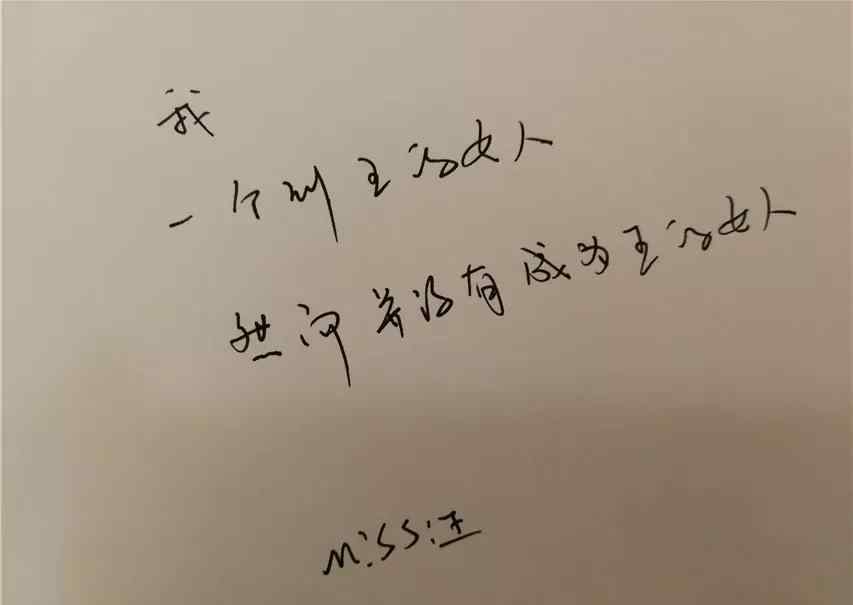 我
一个叫王的女人
然而并没有成为王的女人
miss汪